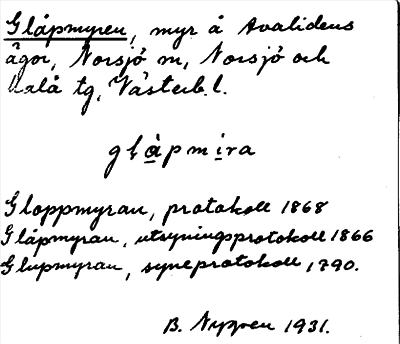 Glåpmyren, myr å Avalidens
ägor, Norsjö sn, Norsjö och
Malå tg, Västerb. l.
gḷàpmira
Gloppmyran, protokoll 1868
Glåpmyran, utsyningsprotokoll 1866
Glupmyran, syneprotokoll 1790.
B. Nygren 1931.